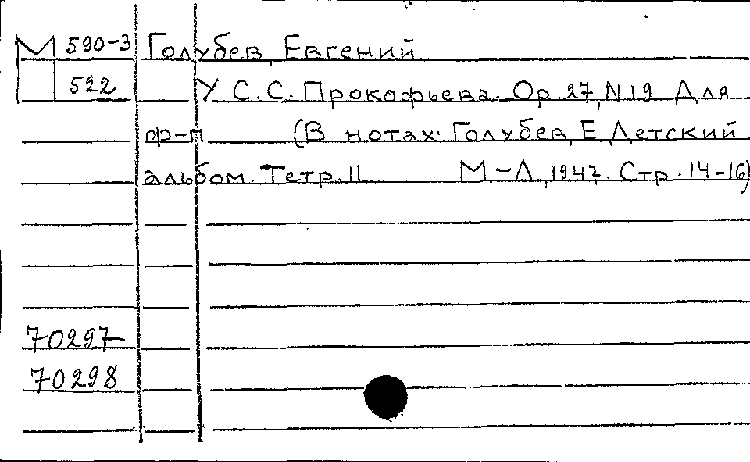 М 590-3 Голубев, Евгений
522 У С.С. Прокофьева. Ор. 27, N 19 Для
ф-п (В нотах: Голубев, Е. Детский
альбом. Тетр. II М-Л, 1947. Стр. 14-16)
70297
70298